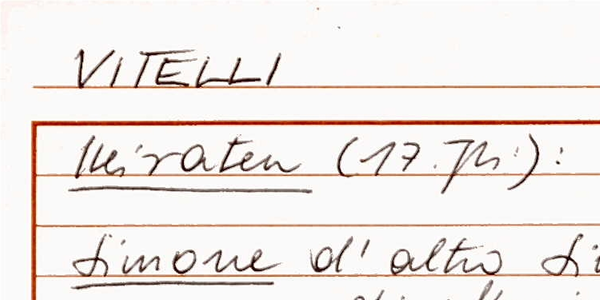 VITELLI
Heiraten (17. Jh.):
Simone d' altro Si